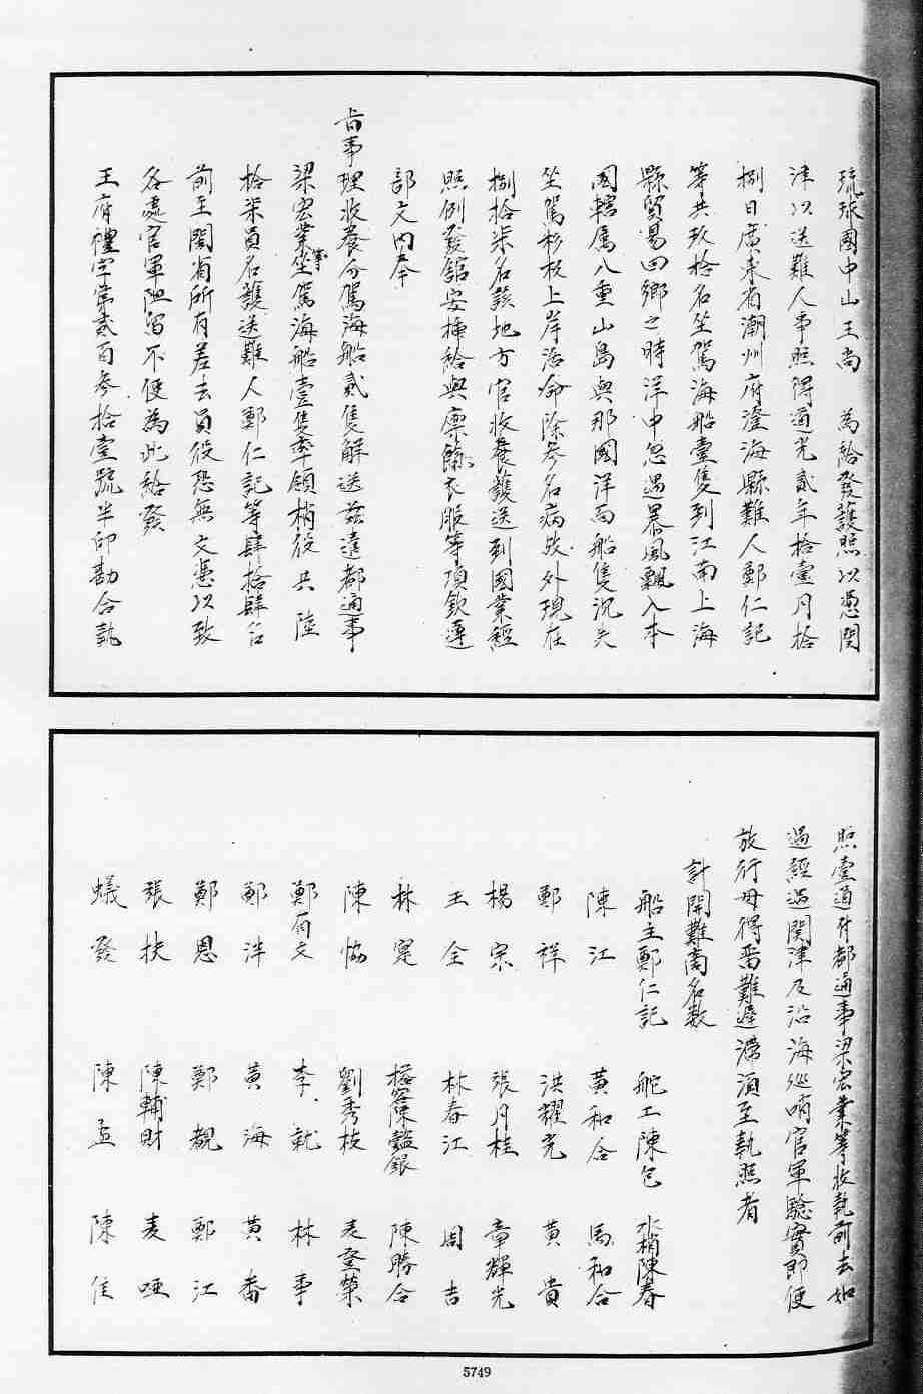 琉球國中山王尚　為給發護照以憑關
津以送難人事照得道光貳年拾壹月拾
捌日廣東省潮州府澄海縣難人鄭仁記
等共玖拾名坐駕海船壹隻到江南上海
縣貿易回鄉之時洋中忽遇暴風飄入本
國轄属八重山島與那國洋面船隻沉失
坐駕杉板上岸活命除叁名病故外現在
捌拾柒名該地方官收養護送到國業經
照例發館安揷給與廪餼衣服等項欽遵
部文内奉
旨事理收養分駕海船貳隻解送茲遣都通事
梁宏業等坐駕海船壹隻率領梢役共陸
拾柒員名護送難人鄭仁記等肆拾肆名
前至閩省所有差去員役恐無文憑以致
各處官軍阻留不便為此給發
王府禮字第貳百叁拾壹號半印勘合執
照壹通付都通事梁宏業等收執前去如
遇經過関津及沿海巡哨官軍驗實即便
放行毋得畱難遲滯須至執照者
計開難商名数
船主鄭仁記　舵工陳包　水梢陳春
陳江　黄和合　馬和合
鄭祥　洪耀光　黄貴
楊宗　張月桂　章輝光
王全　林春江　周吉
林寔　搭客陳鎰銀　陳勝合
陳恊　劉秀枝　麦登榮
鄭有文　李就　林事
鄭泮　黄海　黄番
鄭恩　鄭觀　鄭江
張扶　陳輔財　麦
蟻發　陳孟　陳住
5749